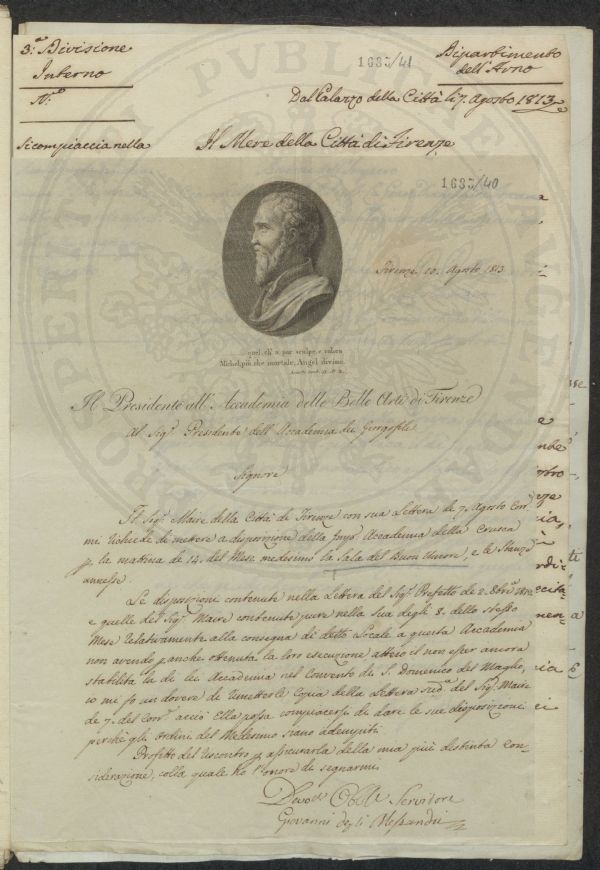 3.ª Divisione
Interno
N.º
Si compiaccia nella
1683/41
Dipartimento
dell'Arno
Dal Palazzo della Città li 7. Agosto 1813
Il Mere della Città di Firenze
1683/40
Firenze 10. Agosto 1813
quel, ch'a par sculpe, e colora
Michel, più che mortale, Angel divino.
Il Presidente all'Accademia delle Belle Arti di Firenze
Al Sig.r Presidente dell'Accademia dei Georgofili
Signore
Il Sig.r Maire della Città di Firenze con sua Lettera de 7. Agosto Cor.
mi richiede di mettere a disposizione della Imp. Accademia della Crusca
p. la mattina de 14. del Mese medesimo la Sala del Buon Umore, e le Stanze
annesse
Le disposizioni contenute nella Lettera del Sig.r Prefetto de 2.
e quelle del Sig.r Maire contenute pure nella Sua degli 8. dello stesso
Mese relativamente alla consegna di detto Locale a questa Accademia
non avendo p. anche ottenuta la loro esecuzione atteso il non esser ancora
stabilita la di lei Accademia nel Convento di S. Domenico del Maglio,
io mi fo un dovere di rimetterle Copia della Lettera sud.a del Sig.r Maire
de 7. del Corr.e acciò Ella possa compiacersi di dare le sue disposizioni
perchè gli Ordini del Medesimo siano adempiti
Profitto del riscontro p. assicurarla della mia più distinta con-
siderazione, colla quale ho l'onore di segnarmi
Devo.mo Obb.mo Servitore
Giovanni degli Alessandri